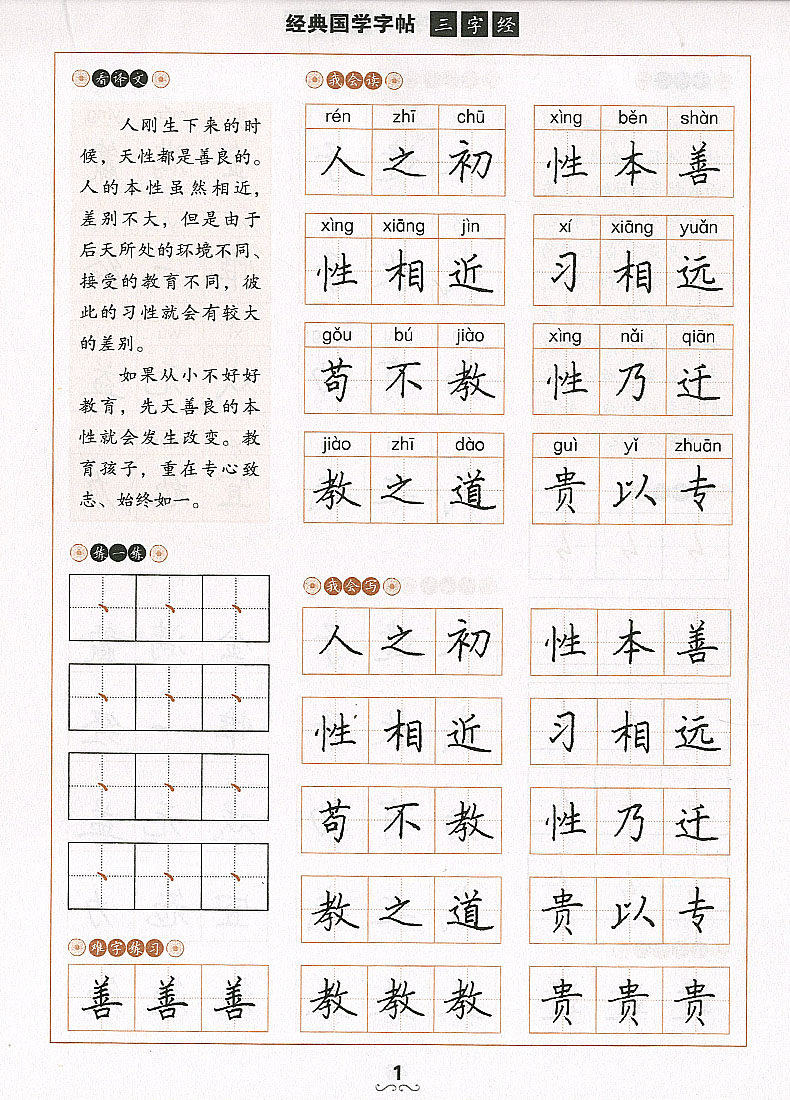 经典国学字帖 三字经
看译文
人刚生下来的时
候，天性都是善良的。
人的本性虽然相近，
差别不大，但是由于
后天所处的环境不同、
接受的教育不同，彼
此的习性就会有较大
的差别。
如果从小不好好
教育，先天善良的本
性就会发生改变。教
育孩子，重在专心致
志、始终如一。
我会读
rén zhī chū xìng běn shàn
人之初 性本善
xìng xiāng jìn xí xiāng yuǎn
性相近 习相远
gǒu bú jiào xìng nǎi qiān
苟不教 性乃迁
jiào zhī dào guì yǐ zhuān
教之道 贵以专
练一练
丶丶丶
丶丶丶
丶丶丶
丶丶丶
我会写
人之初 性本善
性相近 习相远
苟不教 性乃迁
教之道 贵以专
难字练习
善善善 教教教 贵贵贵
1